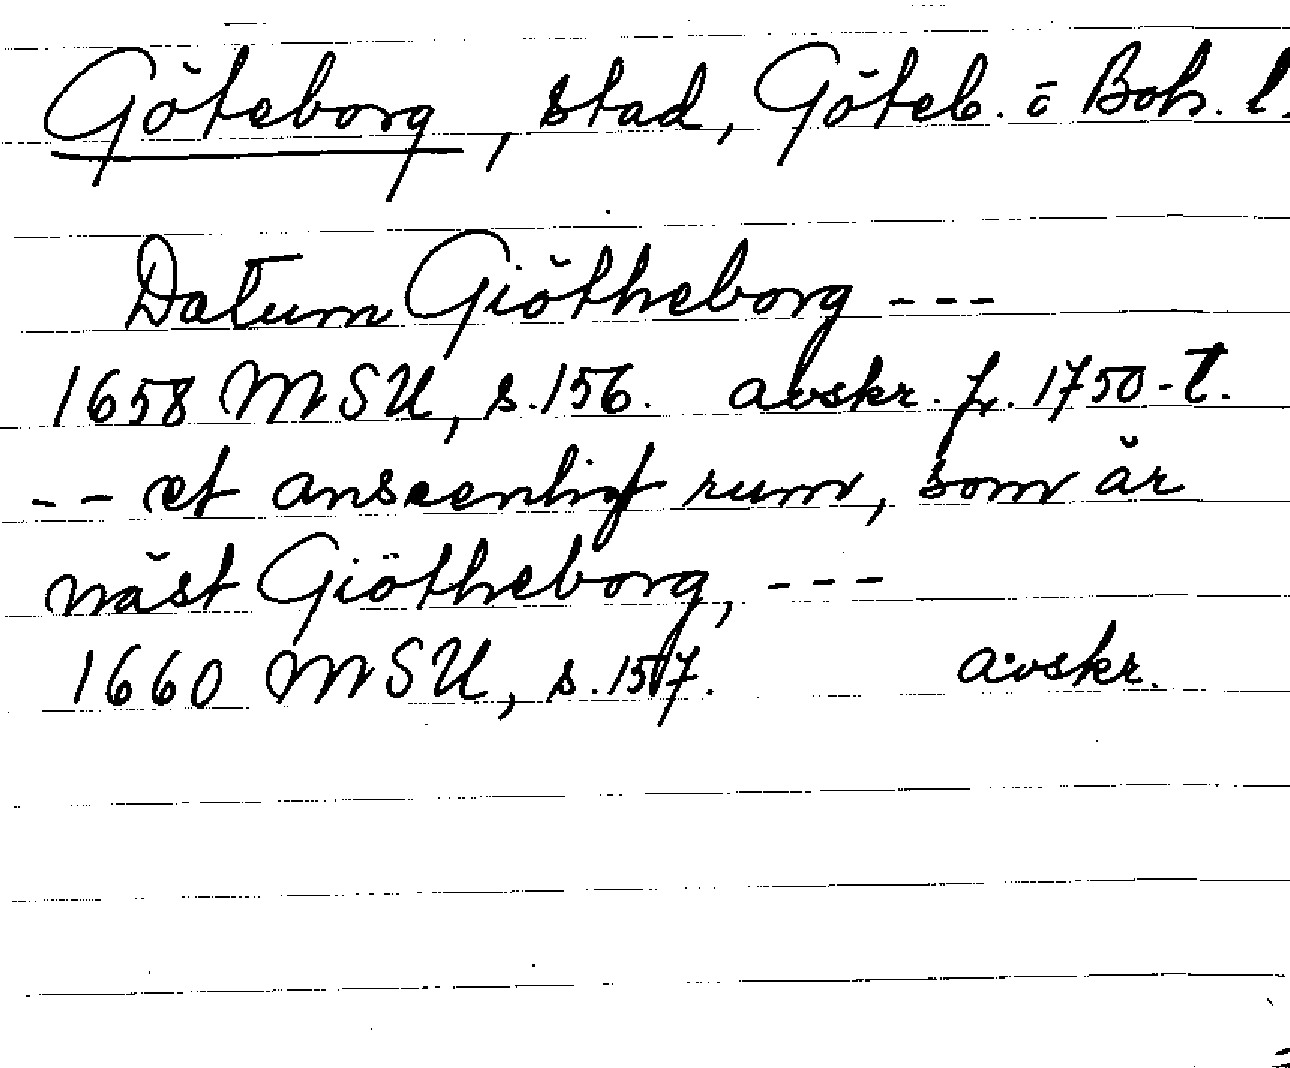 Göteborg, stad, Göteb. o Boh. l.
Datum Giötheborg ---
1658 MSU, s. 156. avskr. fr. 1750-t.
-- et anseenligt rum, som är
näst Giötheborg, ---
1660 MSU, s. 157. avskr.